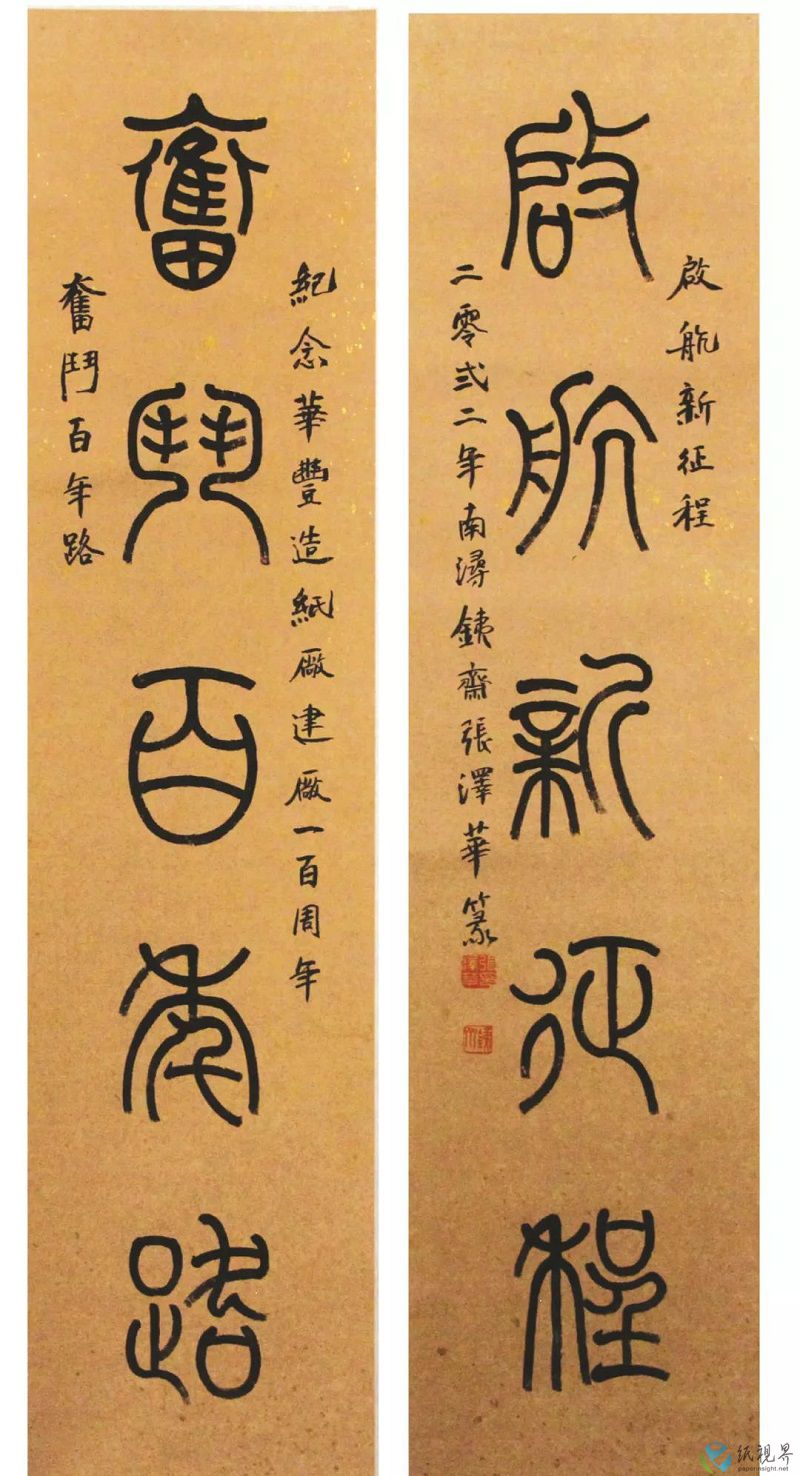 奮鬥百年路
紀念華豐造紙厰建厰一百周年
奮鬥百年路
啟航新征程
啟航新征程
二零弍二年南潯銕齋張澤華篆
纸視界
paperinsight.net